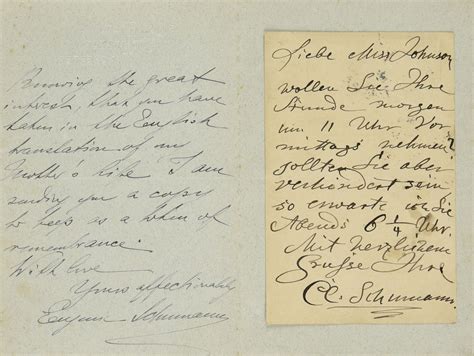 Knowing the great
interest, that you have
taken in the English
translation of my
Mother's life I am
sending you a copy
to keep as a token of
remembrance.
With love
Yours affectionately
Eugenie Schumann
Liebe Miss Johnson
wollen Sie Ihre
Stunde morgen
um 11 Uhr Vor-
mittags nehmen?
sollten Sie aber
verhindert sein
so erwarte ich Sie
Abends 6 1/4 Uhr.
Mit herzlichem
Grusse Ihre
Cl. Schumann.